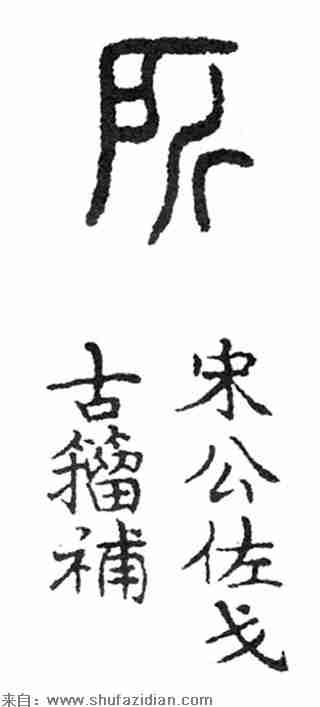 所
宋公佐戈
古籀補
来自：www.shufazidian.com